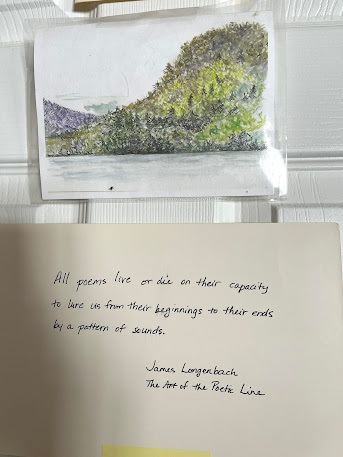 All poems live or die on their capacity
to lure us from their beginnings to their ends
by a pattern of sounds.
James Longenbach
The Art of the Poetic Line